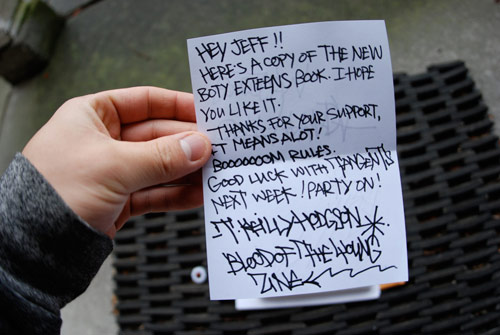 HEY JEFF!!
HERE'S A COPY OF THE NEW
BOTY EXTEENS BOOK. I HOPE
YOU LIKE IT.
THANKS FOR YOUR SUPPORT,
IT MEANS ALOT!
BOOOOOOM RULES.
GOOD LUCK WITH TANGENTS
NEXT WEEK! PARTY ON!
HODGSON
BLOOD OF THE YOUNG
ZINE